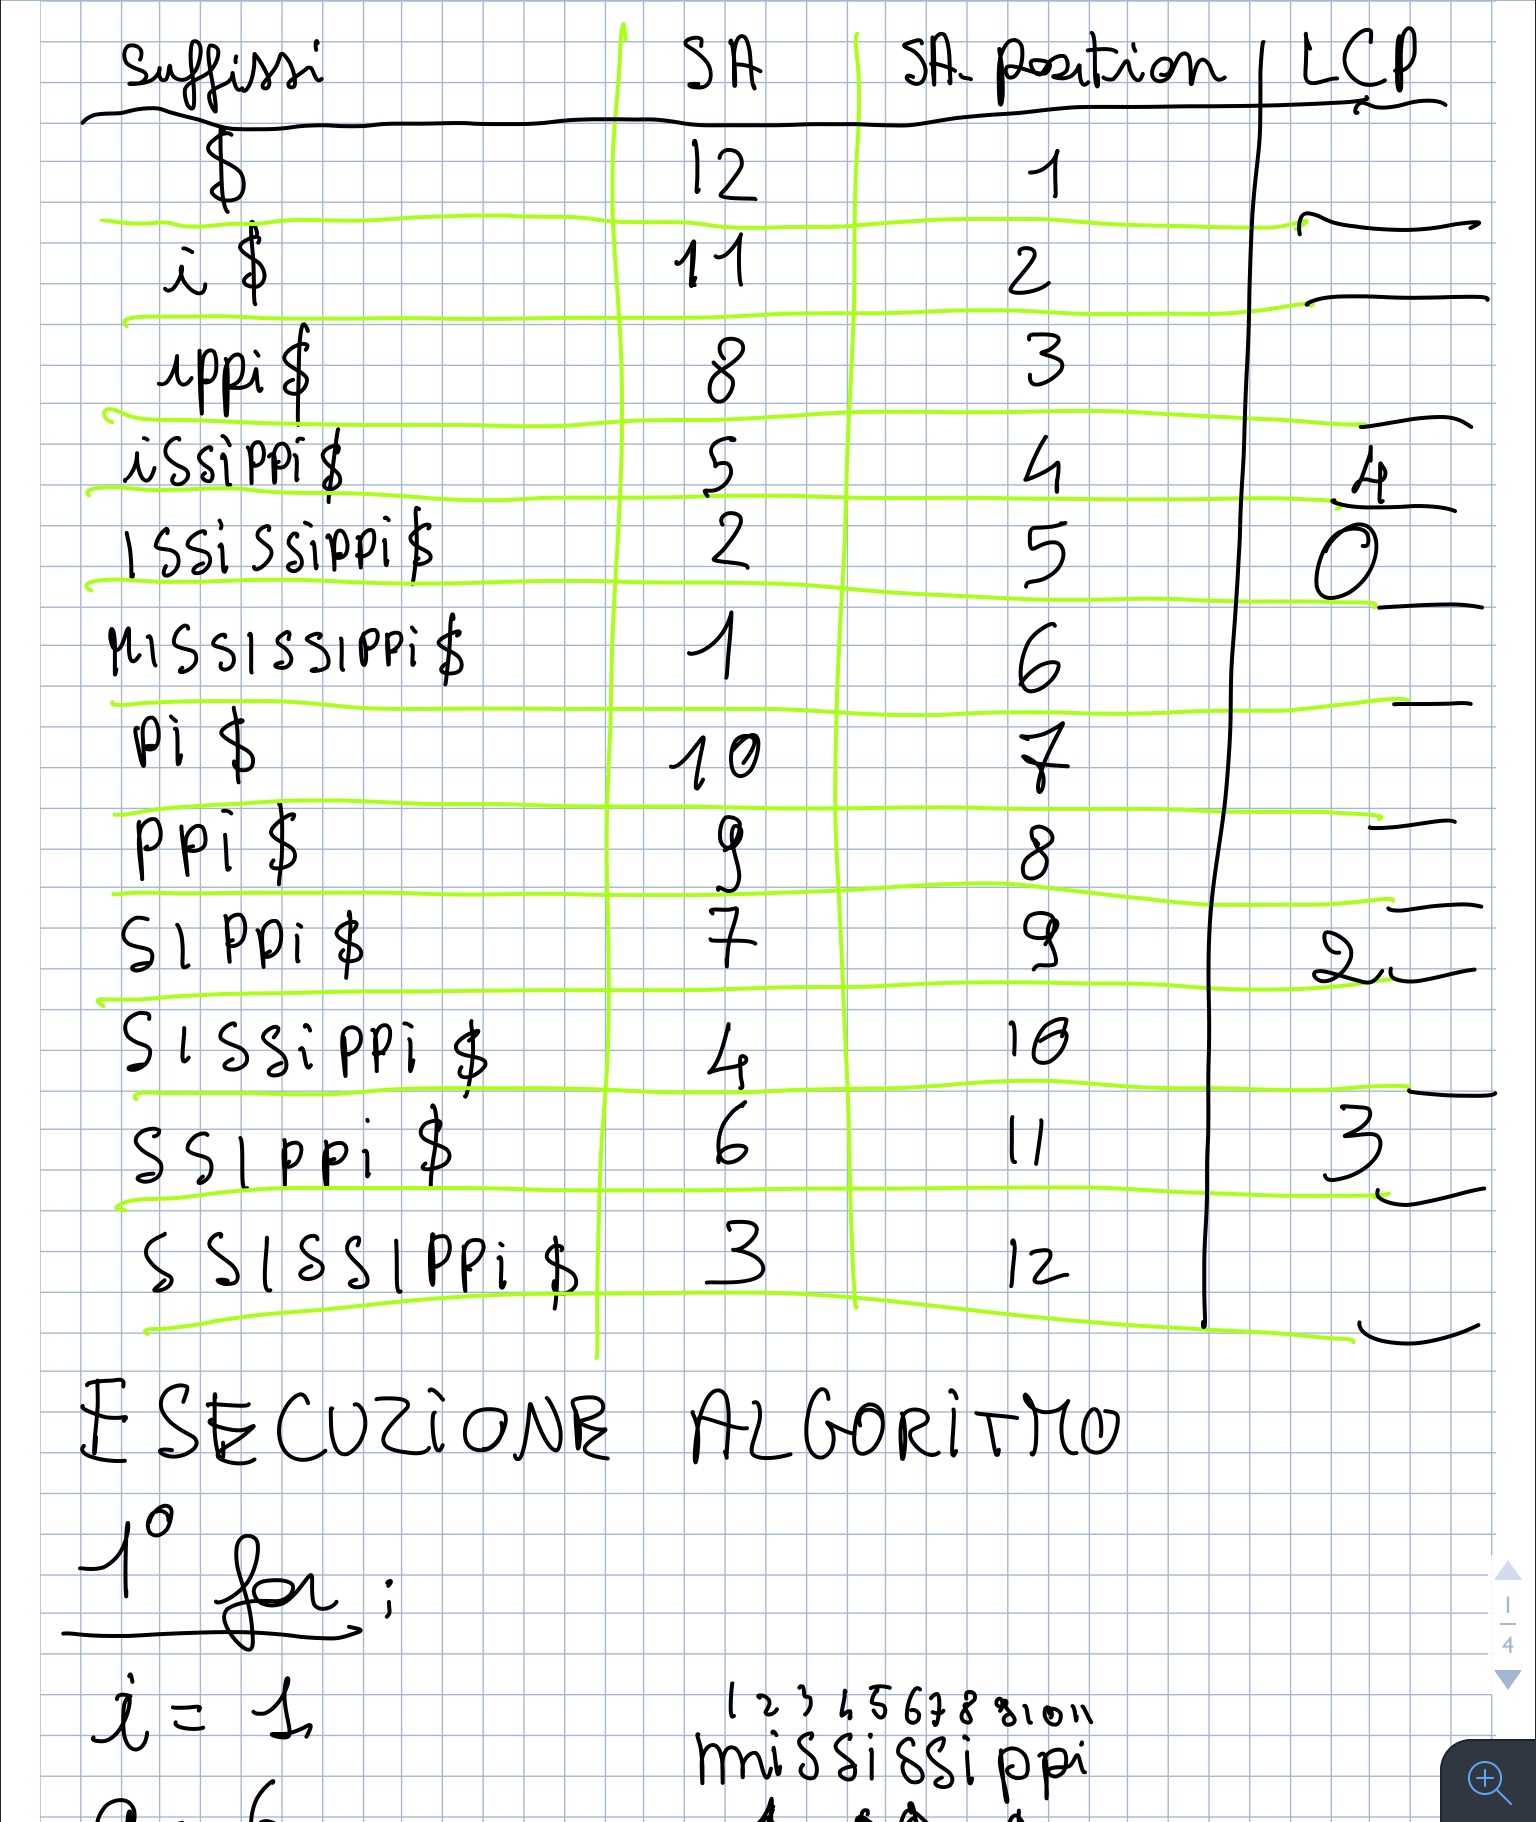 Suffissi SA SA-position LCP
$ 12 1
i $ 11 2
ippi $ 8 3
issippi $ 5 4 4
ISSiSSippi $ 2 5 0
MISSISSIPPi $ 1 6
Pi $ 10 7
PPi $ 9 8
SIPPi $ 7 9 2
SISSiPPi $ 4 10
SSIPPi $ 6 11 3
SSISSIPPi $ 3 12
ESECUZIONE ALGORITMO
1° for:
i = 1
1 2 3 4 5 6 7 8 9 10 11
mississippi